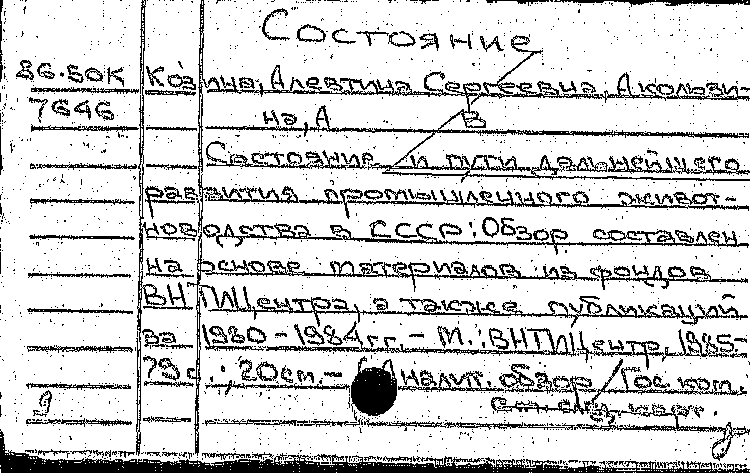 Состояние
86-50К Козина, Алевтина Сергеевна, Акользи-
7646 на, А В
Состояние и пути дальнейшего
развития промышленного живот-
новодства в СССР: Обзор составлен
на основе материалов из фондов
ВНТИЦентра, а также публикаций
за 1980-1984 гг. - М.: ВНТИЦентр, 1985-
79 с.; 20 см. - (Аналит. обзор / Гос ком.
см. след. карт.
9